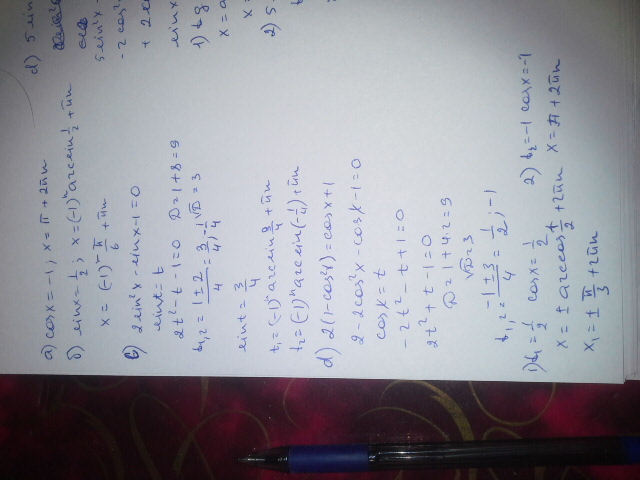 а) cosx = -1; x = π + 2πn
б) sinx = 1/2; x = (-1)^n arcsin 1/2 + πn
x = (-1)^n π/6 + πn
в) 2sin²x - sinx - 1 = 0
sint = t
2t² - t - 1 = 0 D = 1 + 8 = 9
t₁,₂ = (1 ± 2)/4 = 3/4; -1/4 √D = 3
sint = 3/4
t₁ = (-1)^n arcsin 3/4 + πn
t₂ = (-1)^n arcsin(-1/4) + πn
d) 2(1 - cos²x) = cosx + 1
2 - 2cos²x - cosx - 1 = 0
cosx = t
-2t² - t + 1 = 0
2t² + t - 1 = 0
D = 1 + 4·2 = 9
√D = 3
t₁,₂ = (-1 ± 3)/4 = 1/2; -1
1) t₁ = 1/2 cosx = 1/2 2) t₂ = -1 cosx = -1
x = ± arccos 1/2 + 2πn x = π + 2πn
x₁ = ± π/3 + 2πn
d) 5 sin
5sin²x -
-2cos²
+ 2
sinx
1) tg
x = a
x =
2) 5